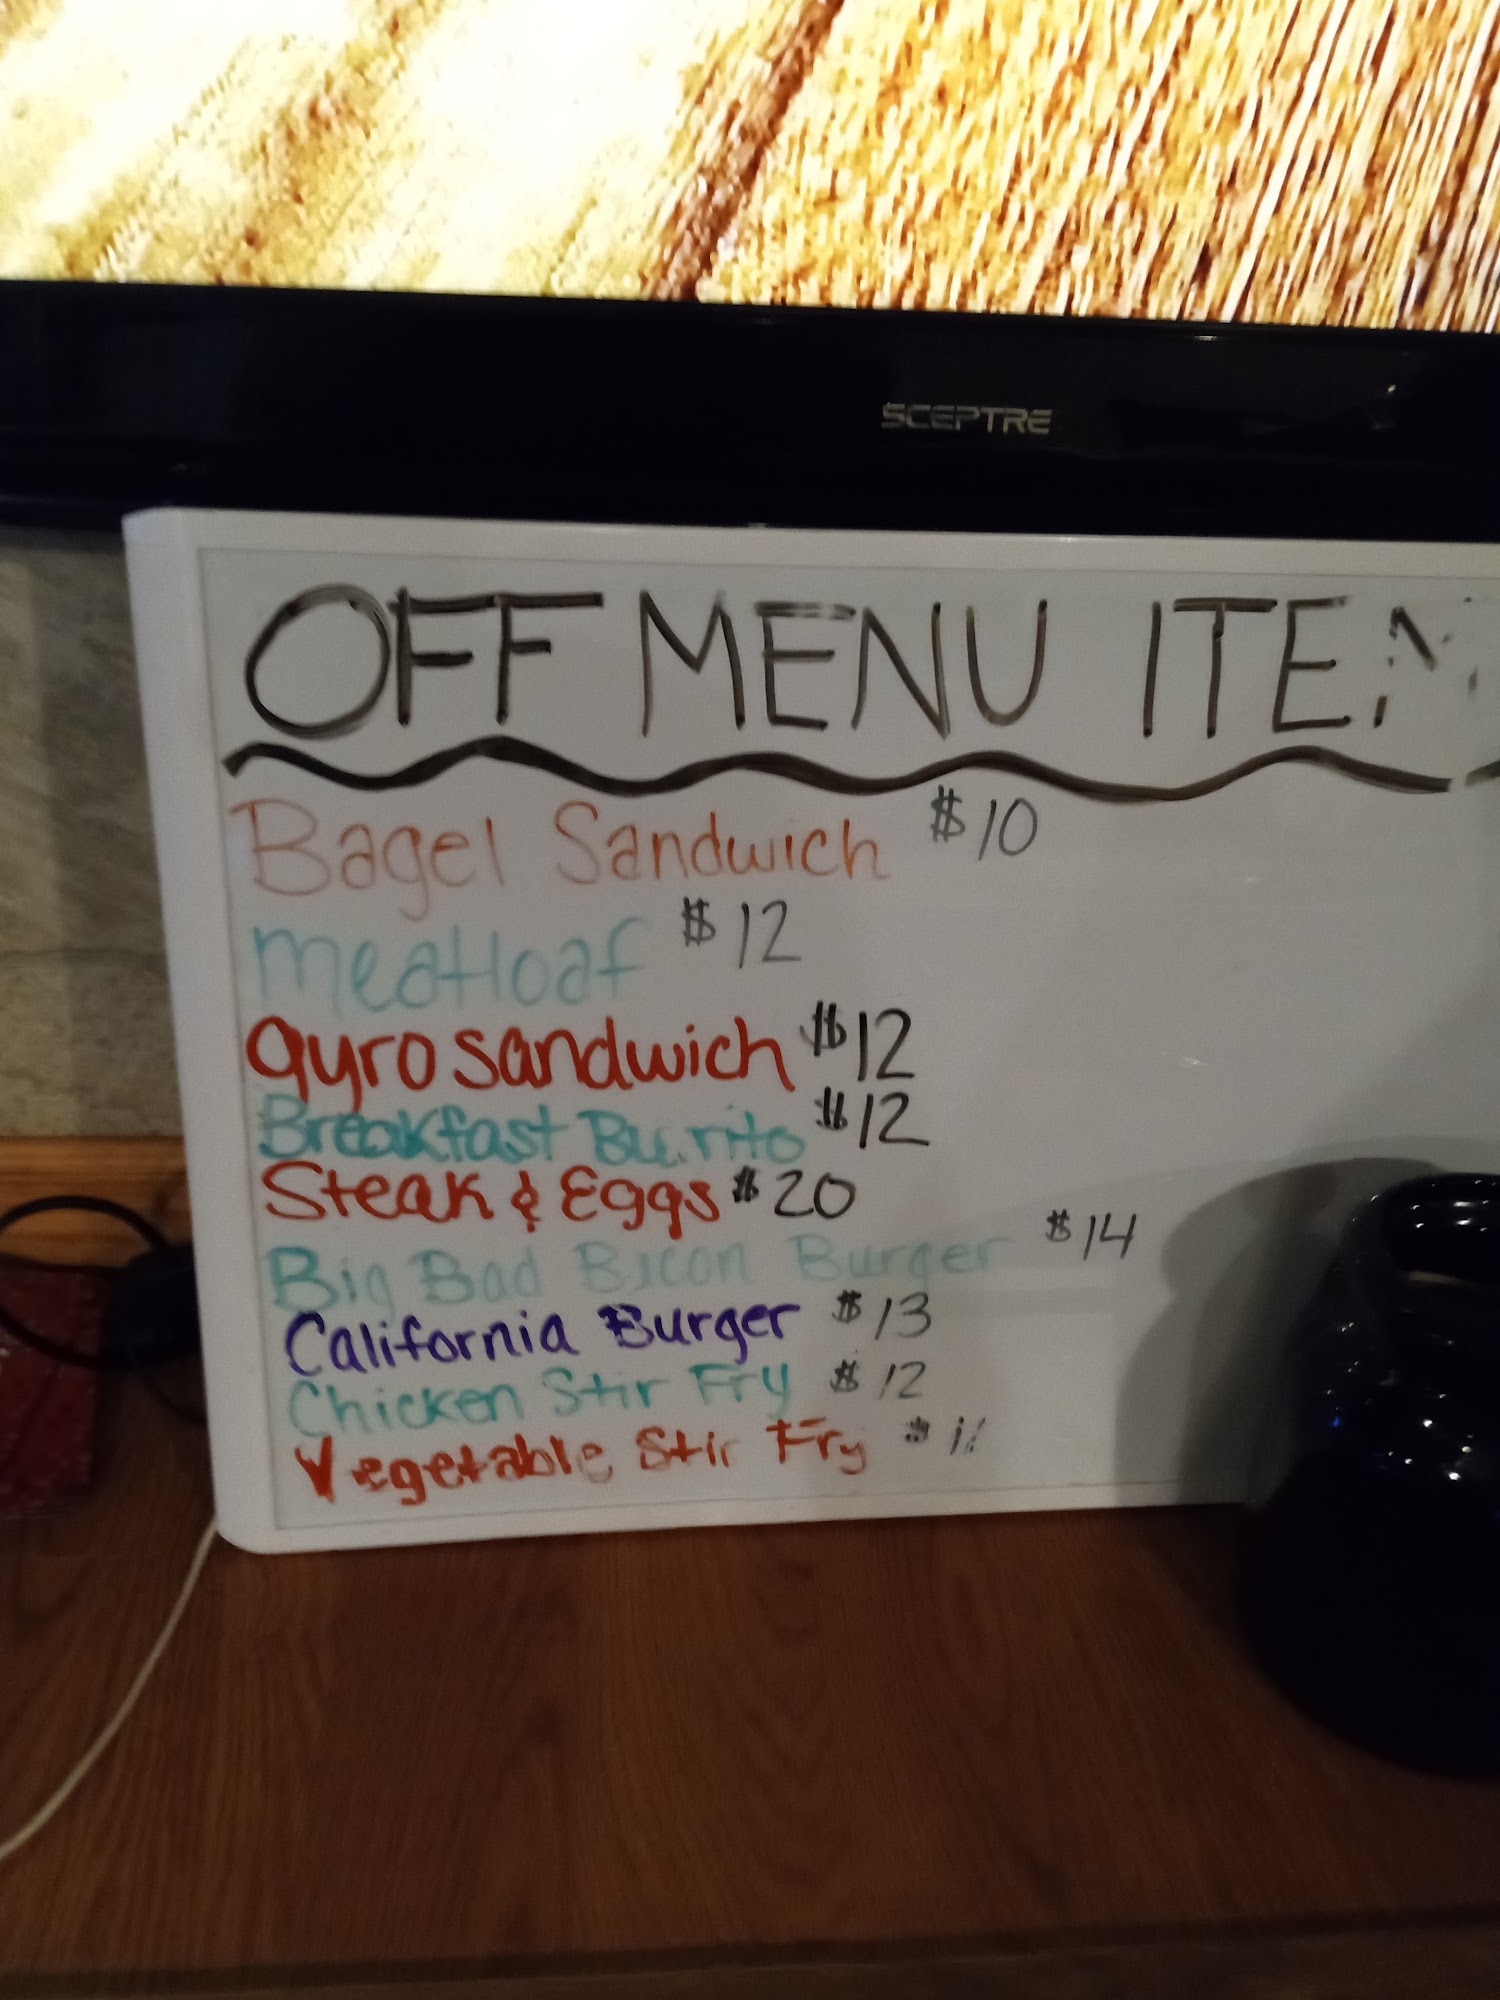 SCEPTRE
OFF MENU ITEM
Bagel Sandwich $10
meatloaf $12
gyro sandwich $12
Breakfast Burrito $12
Steak & Eggs $20
Big Bad Bacon Burger $14
California Burger $13
Chicken Stir Fry $12
Vegetable Stir Fry